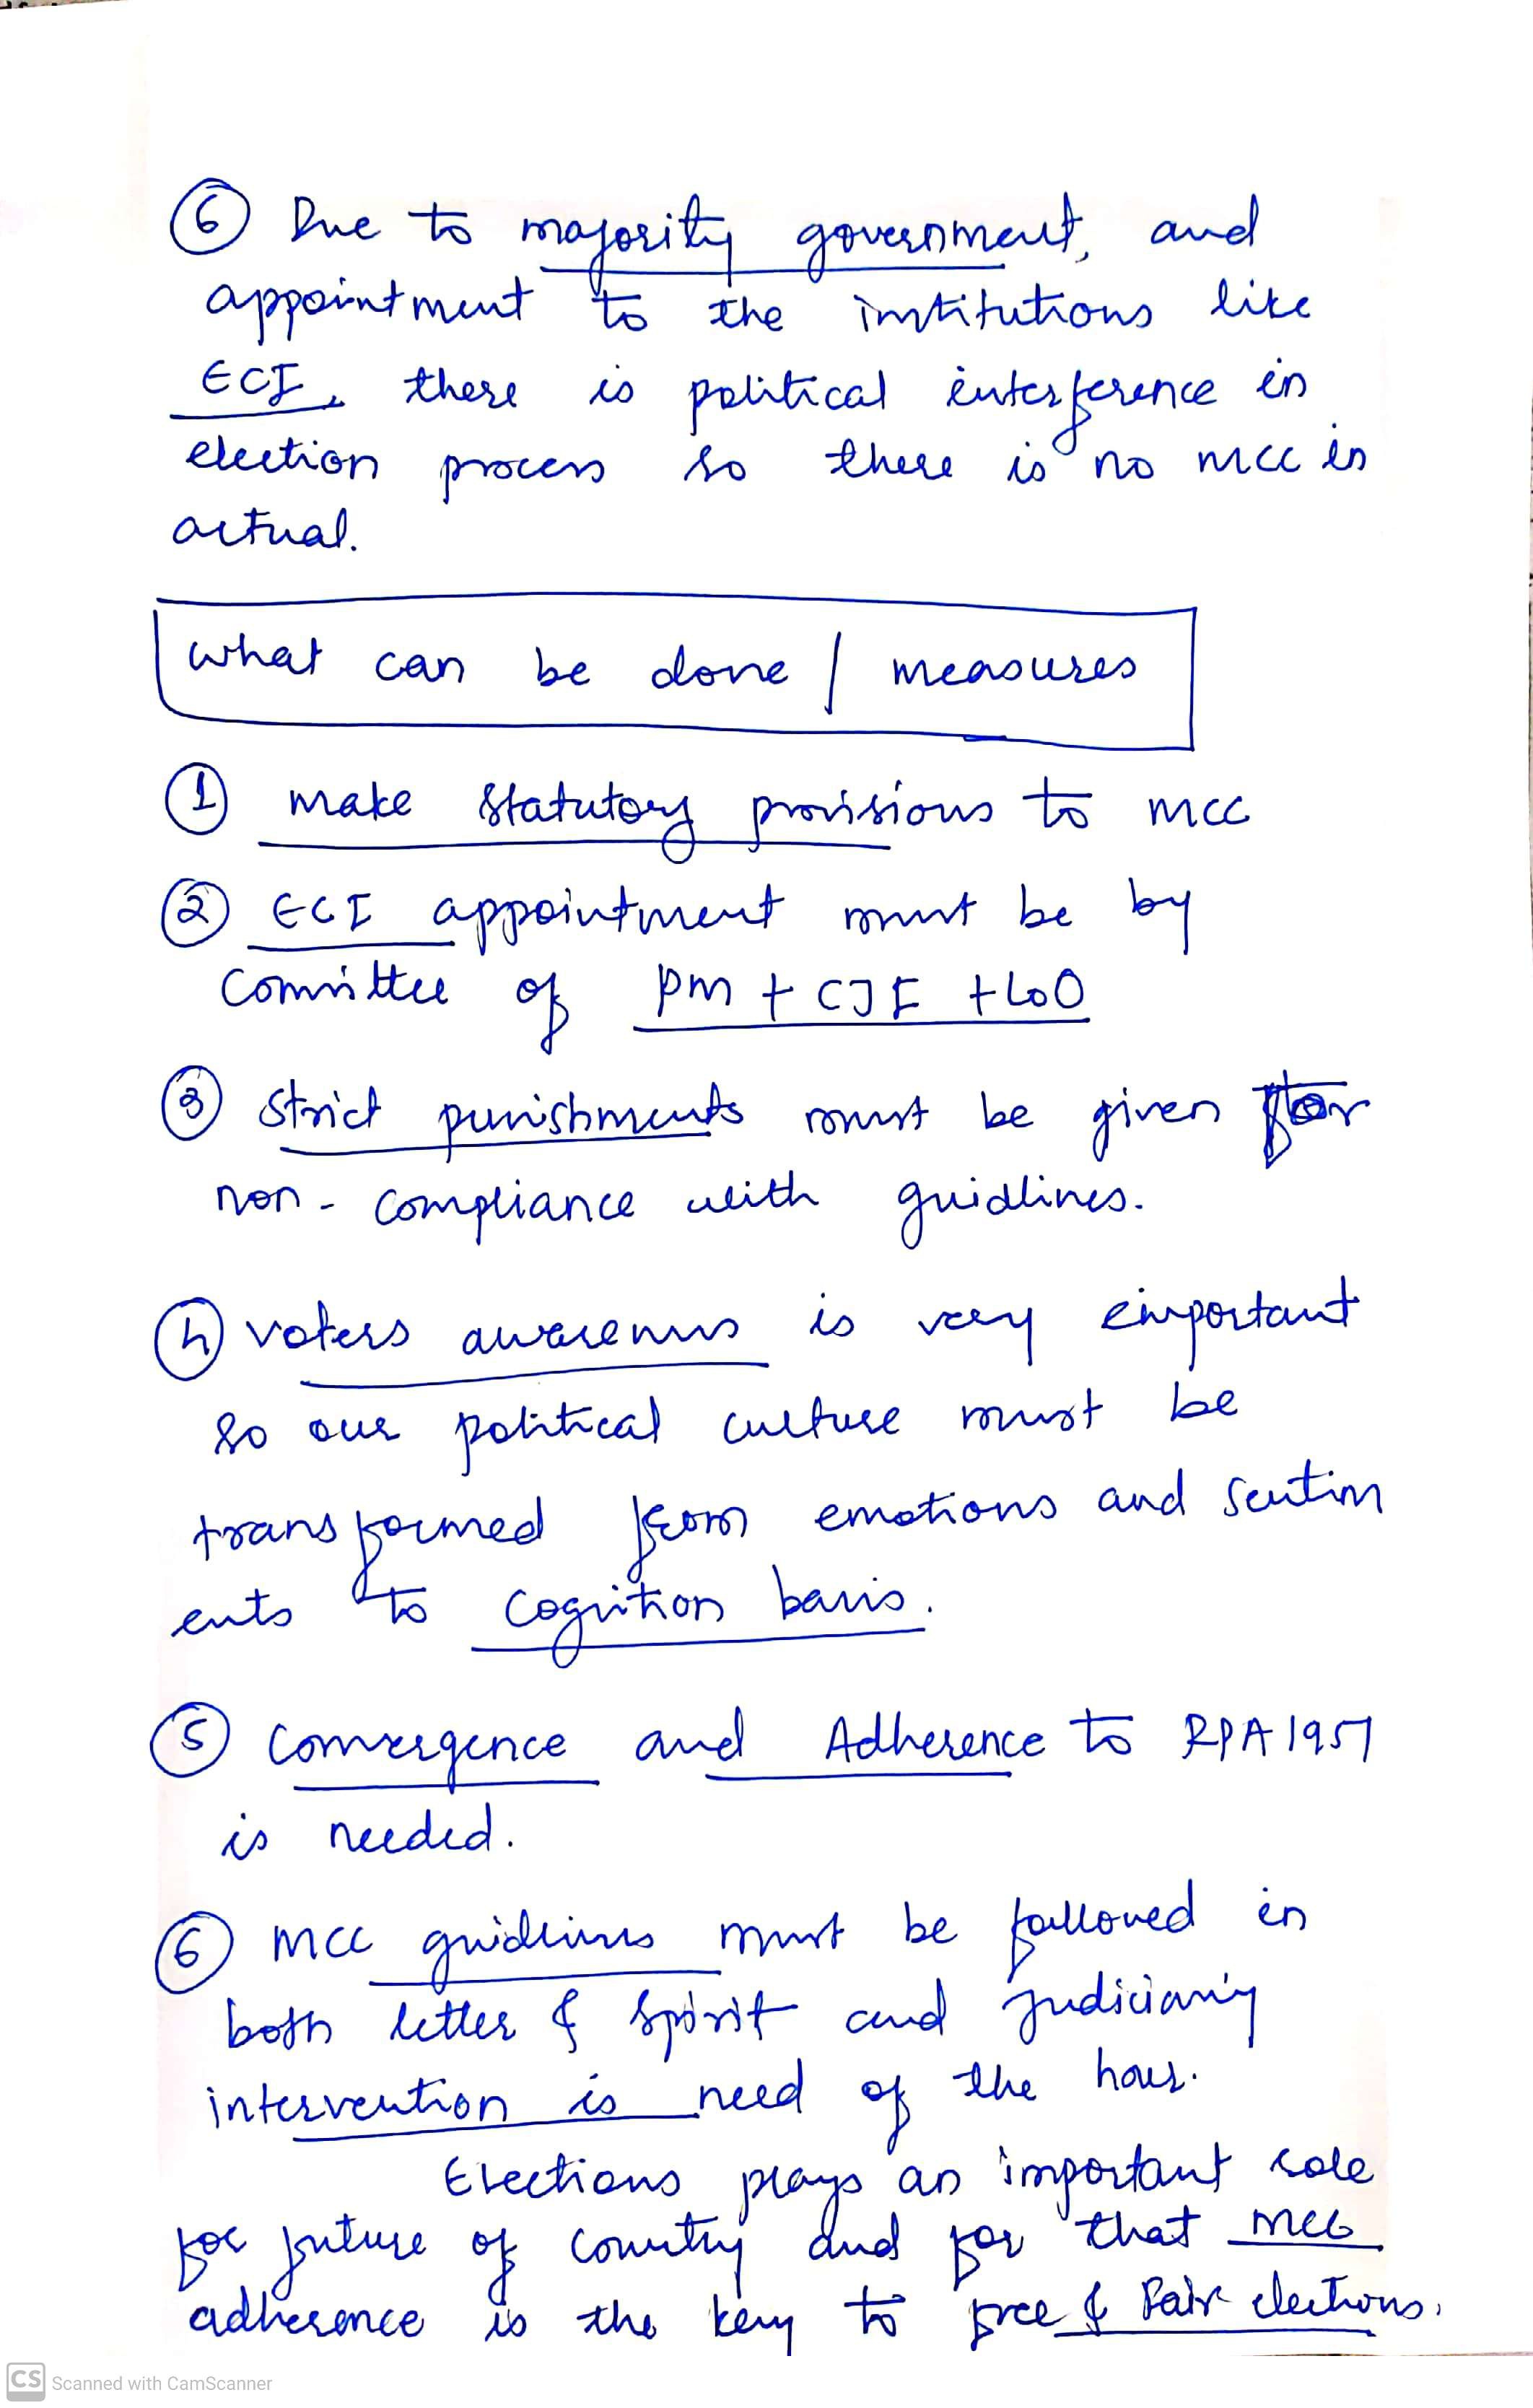 6 Due to majority government, and
appointment to the institutions like
ECI, there is political interference in
election process so there is no MCC in
actual.
what can be done / measures
1 make statutory provisions to MCC
2 ECI appointment must be by
committee of PM + CJI + LoO
3 strict punishments must be given for
non - compliance with guidlines.
4 voters awareness is very important
so our political culture must be
transformed from emotions and sentim
ents to cognition basis.
5 convergence and Adherence to RPA 1951
is needed.
6 MCC guidlines must be followed in
both letter & spirit and judiciary
intervention is need of the hour.
Elections plays an important role
for future of country and for that MCC
adherence is the key to free & Fair elections.
CS Scanned with CamScanner